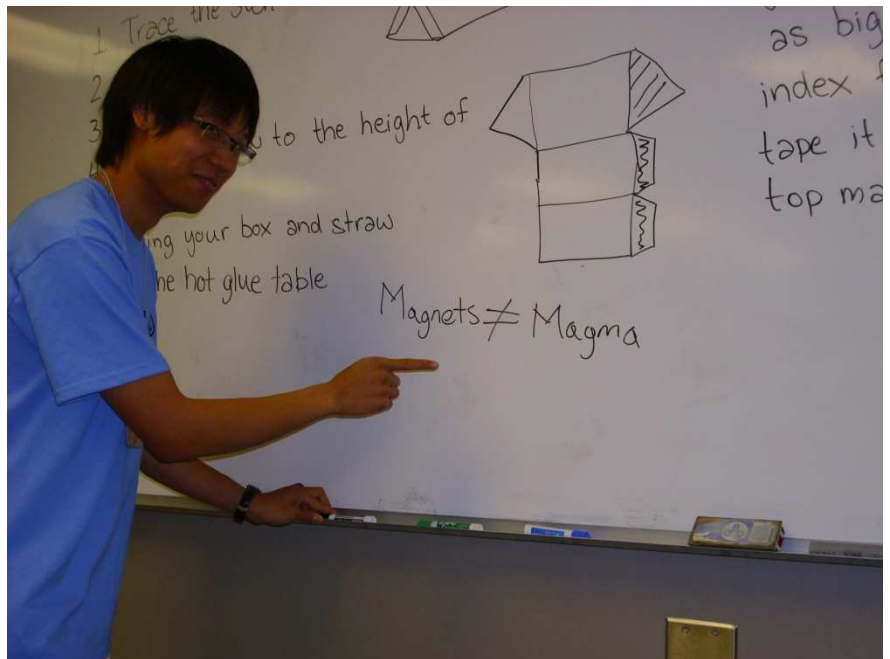 1 Trace the
2
3 to the height of
4
your box and straw
hot glue table
Magnets ≠ Magma
as big
index
tape it
top